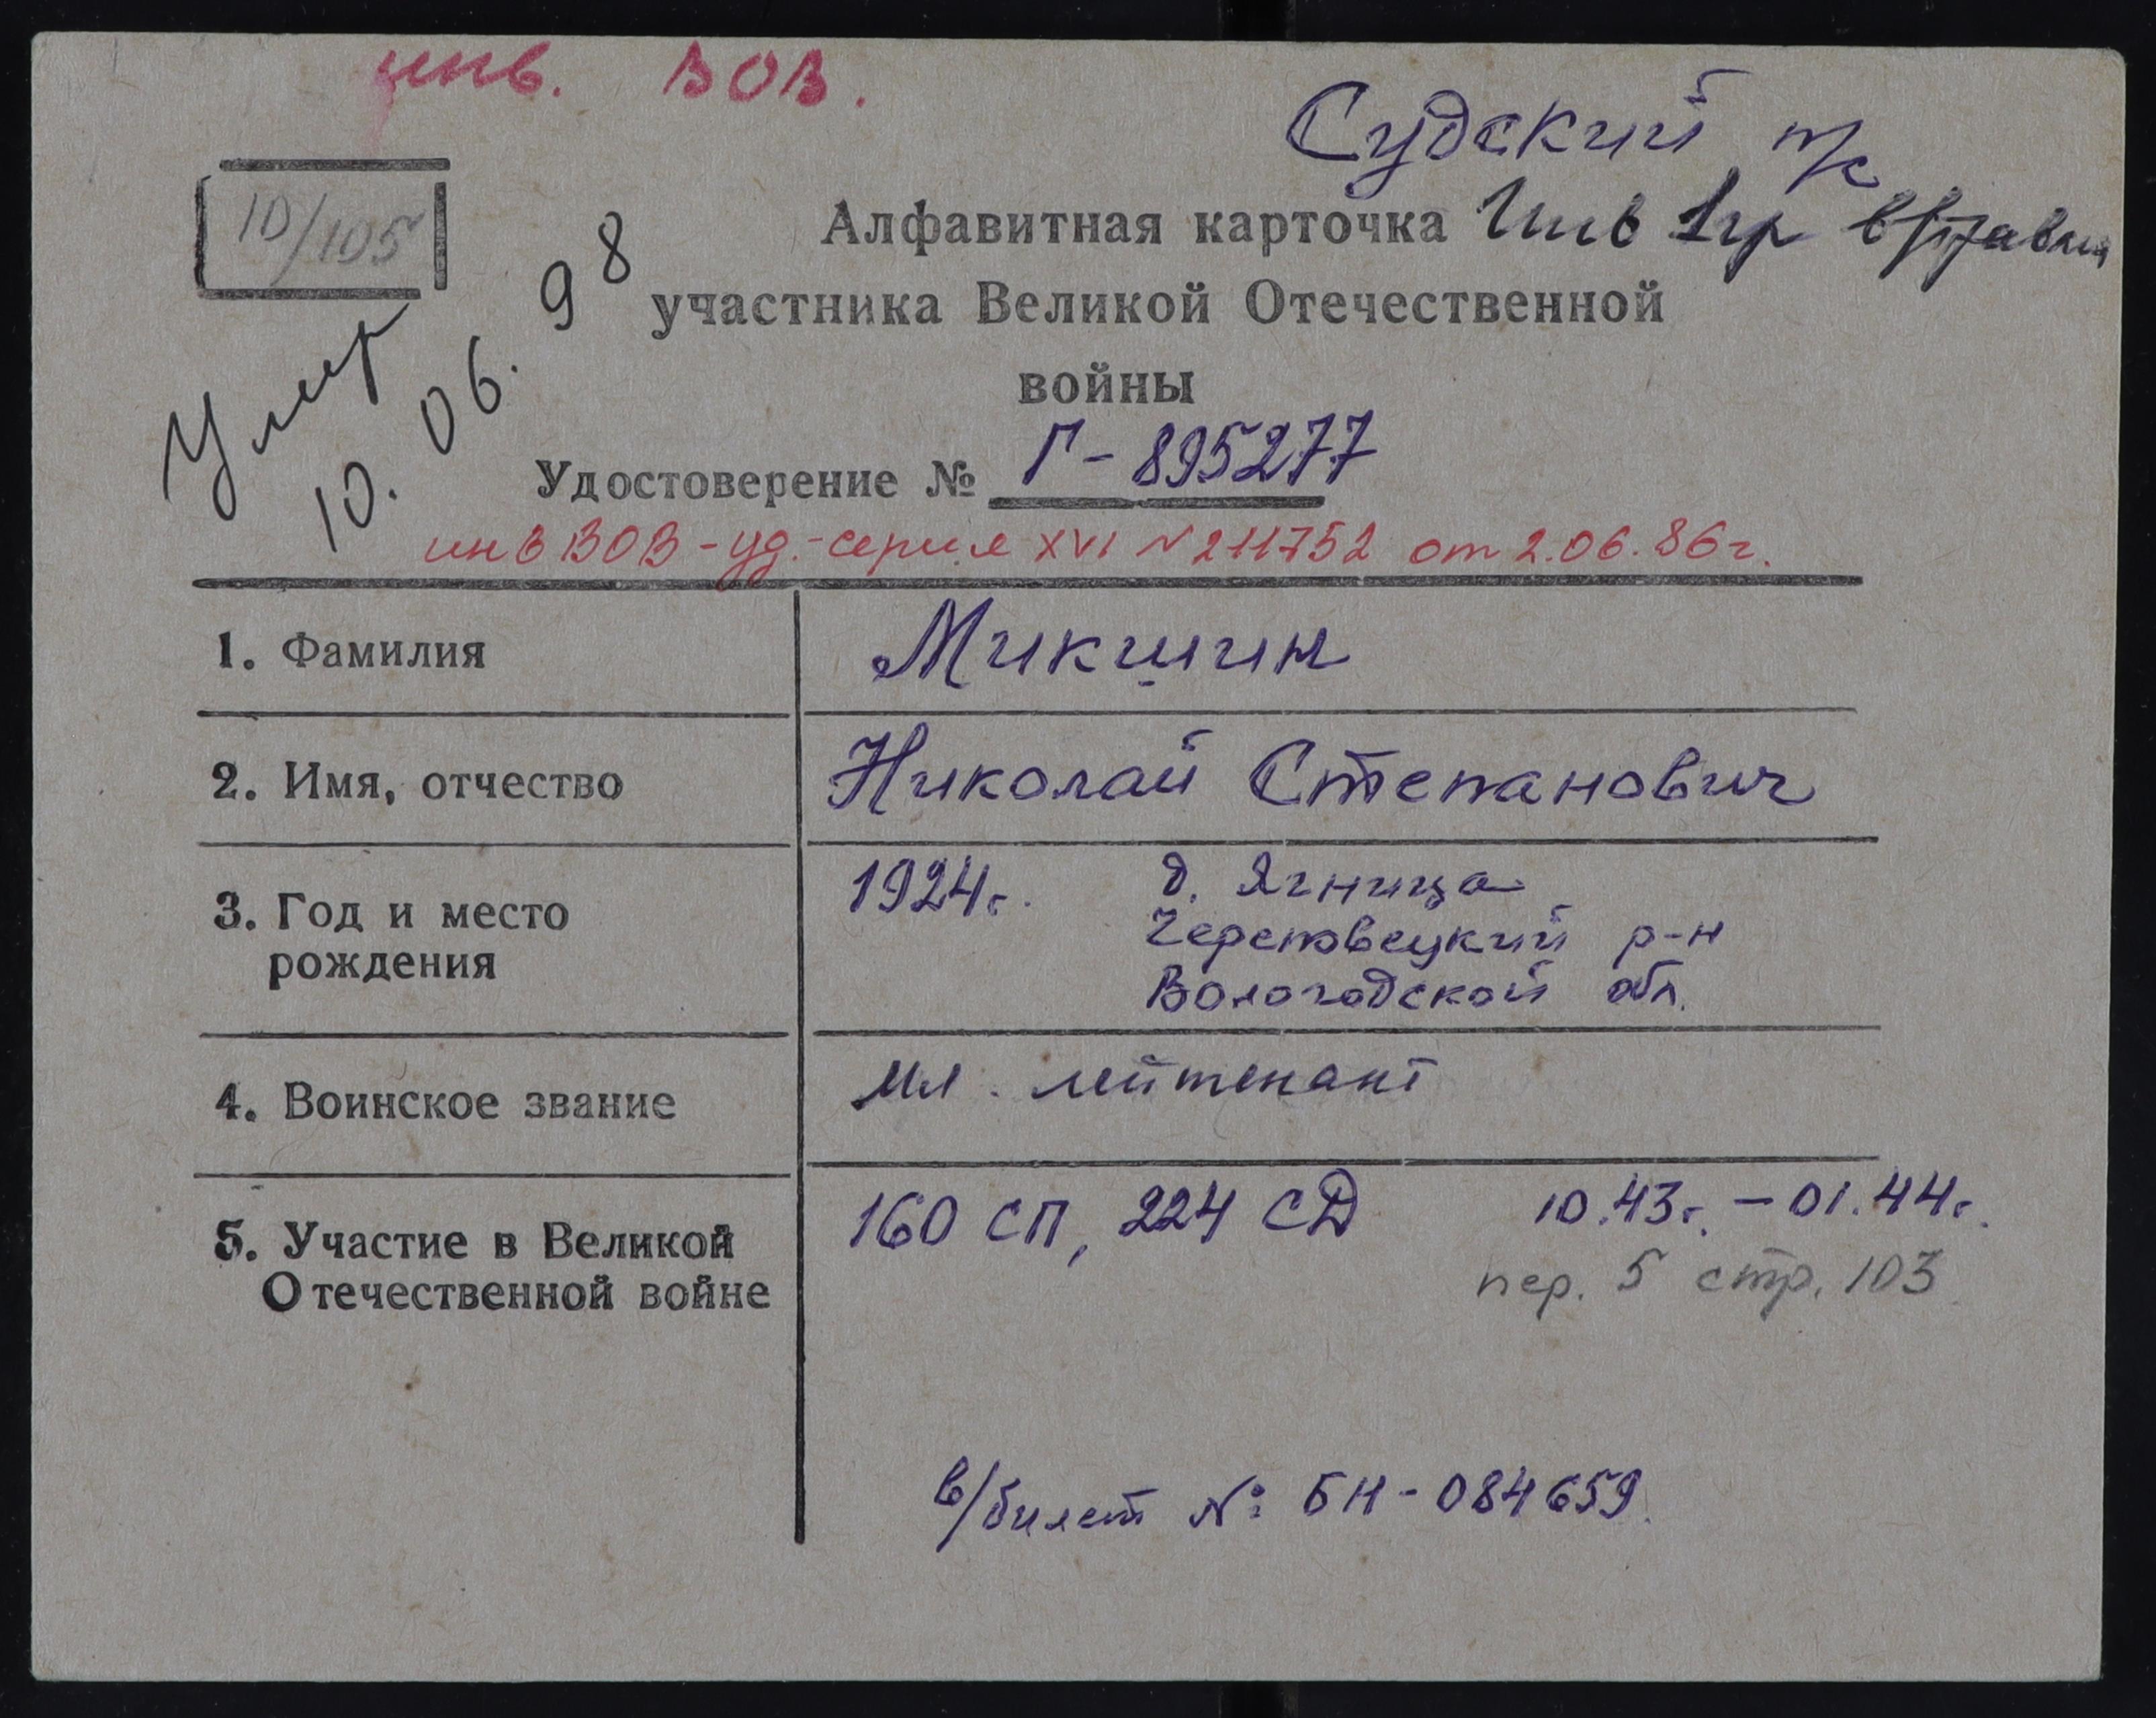 инв. ВОВ.
Судский п/с
10/105
Алфавитная карточка Инв 1гр
участника Великой Отечественной
войны
Умер
10. 06. 98
Удостоверение № Г-895277
инв ВОВ - уд. - серия XVI N 211752 от 2.06.86г.
1. Фамилия Микшин
2. Имя, отчество Николай Степанович
3. Год и место рождения 1924г. д. Ягница
Череповецкий р-н
Вологодской обл.
4. Воинское звание Мл. лейтенант
5. Участие в Великой Отечественной войне 160 СП, 224 СД 10.43г. - 01.44г.
пер. 5 стр. 103
в/билет №: БН-084659.